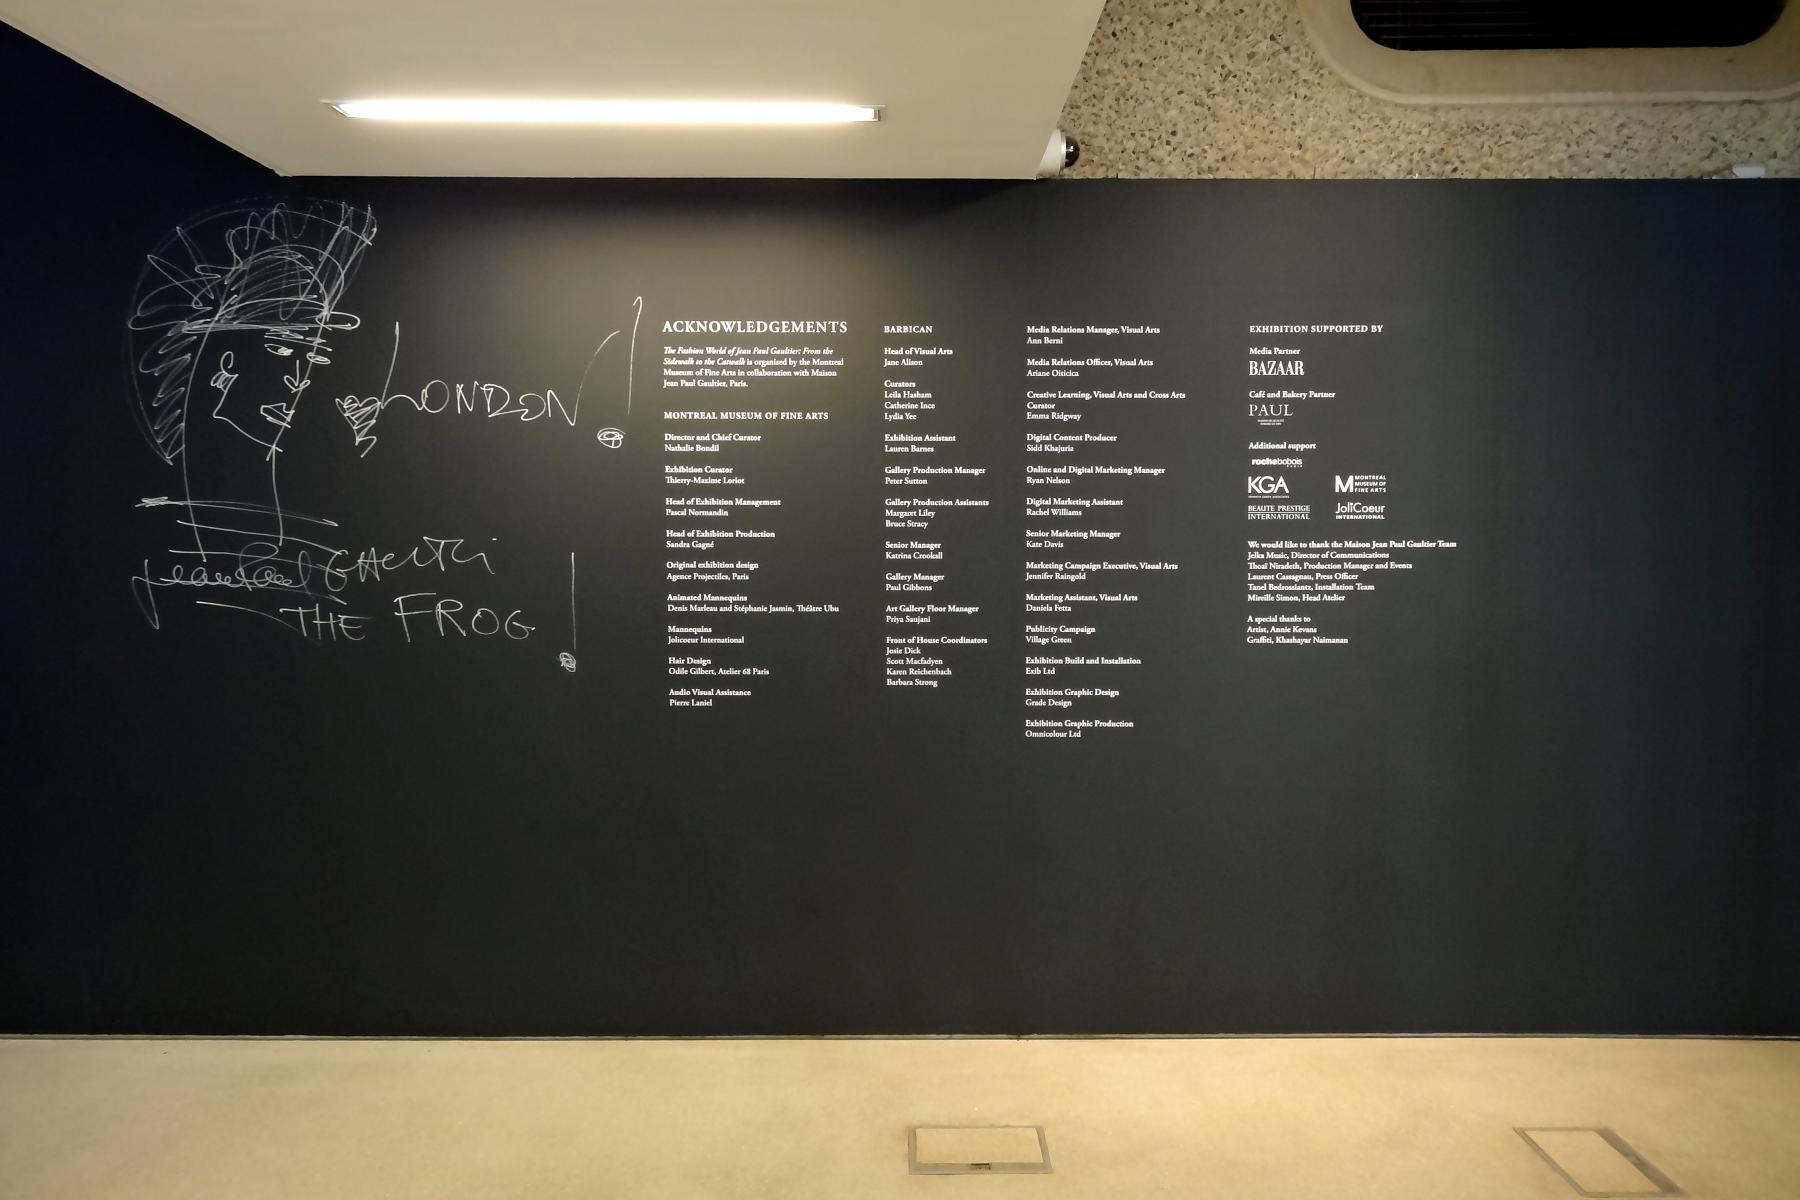 LONDON!
Jean Paul GAULTIER
THE FROG!
ACKNOWLEDGEMENTS
The Fashion World of Jean Paul Gaultier: From the
Sidewalk to the Catwalk is organised by the Montreal
Museum of Fine Arts in collaboration with Maison
Jean Paul Gaultier, Paris.
MONTREAL MUSEUM OF FINE ARTS
Director and Chief Curator
Nathalie Bondil
Exhibition Curator
Thierry-Maxime Loriot
Head of Exhibition Management
Pascal Normandin
Head of Exhibition Production
Sandra Gagné
Original exhibition design
Agence Projectiles, Paris
Animated Mannequins
Denis Marleau and Stéphanie Jasmin, Théâtre Ubu
Mannequins
Jolicoeur International
Hair Design
Odile Gilbert, Atelier 68 Paris
Audio Visual Assistance
Pierre Laniel
BARBICAN
Head of Visual Arts
Jane Alison
Curators
Leila Hasham
Catherine Ince
Lydia Yee
Exhibition Assistant
Lauren Barnes
Gallery Production Manager
Peter Sutton
Gallery Production Assistants
Margaret Liley
Bruce Stracy
Senior Manager
Katrina Crookall
Gallery Manager
Paul Gibbons
Art Gallery Floor Manager
Priya Saujani
Front of House Coordinators
Josie Dick
Scott Macfadyen
Karen Reichenbach
Barbara Strong
Media Relations Manager, Visual Arts
Ann Berni
Media Relations Officer, Visual Arts
Ariane Oiticica
Creative Learning, Visual Arts and Cross Arts
Curator
Emma Ridgway
Digital Content Producer
Sidd Khajuria
Online and Digital Marketing Manager
Ryan Nelson
Digital Marketing Assistant
Rachel Williams
Senior Marketing Manager
Kate Davis
Marketing Campaign Executive, Visual Arts
Jennifer Raingold
Marketing Assistant, Visual Arts
Daniela Fetta
Publicity Campaign
Village Green
Exhibition Build and Installation
Exib Ltd
Exhibition Graphic Design
Grade Design
Exhibition Graphic Production
Omnicolour Ltd
EXHIBITION SUPPORTED BY
Media Partner
BAZAAR
Café and Bakery Partner
PAUL
Additional support
rochebobois
PARIS
KGA
MONTREAL
MUSEUM OF
FINE ARTS
BEAUTE PRESTIGE
INTERNATIONAL
JoliCoeur
INTERNATIONAL
We would like to thank the Maison Jean Paul Gaultier Team
Jelka Music, Director of Communications
Thoaï Niradeth, Production Manager and Events
Laurent Cassagnau, Press Officer
Tanel Bedrossiantz, Installation Team
Mireille Simon, Head Atelier
A special thanks to
Artist, Annie Kevans
Graffiti, Khashayar Naimanan